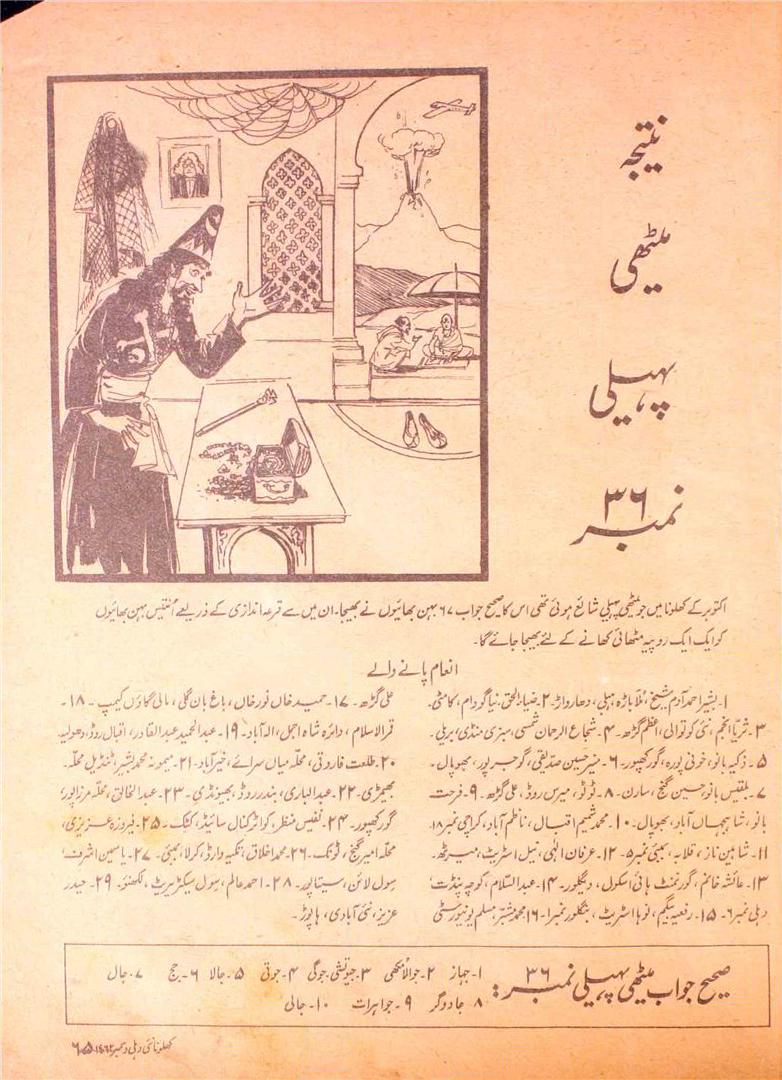 نتیجہ
میٹھی
پہیلی
نمبر ۳۶
اکتوبر کے کھلونا میں جو میٹھی پہیلی شائع ہوئی تھی اس کا صحیح جواب ۶۷ بہن بھائیوں نے بھیجا۔ ان میں سے قرعہ اندازی کے ذریعے اُنتیس بہن بھائیوں
کو ایک ایک روپیہ مٹھائی کھانے کے لئے بھیجا جائے گا۔
انعام پانے والے
۱۔ بشیر احمد آدم شیخ، مُلّا باڑہ، ہبلی، دھارواڑ۔ ۲۔ ضیاء الحق، نیا گودام، کامٹی۔
۳۔ ثریّا انجم، نئی کوتوالی، اعظم گڑھ۔ ۴۔ شجاع الرحمان شمسی، سبزی منڈی، بریلی۔
۵۔ ذکیہ بانو، خونی پورہ، گورکھپور۔ ۶۔ منیر حسین صدیقی، گوجر پور، بھوپال۔
۷۔ بلقیس بانو، حسین گنج، سارن۔ ۸۔ ٹوٹو، میرس روڈ، علی گڑھ۔ ۹۔ فرحت
بانو، شاہجہاں آباد، بھوپال۔ ۱۰۔ محمد شمیم اقبال، ناظم آباد، کراچی نمبر ۱۸۔
۱۱۔ شاہین ناز، قلابہ، بمبئی نمبر ۵۔ ۱۲۔ عرفان الٰہی، نیل اسٹریٹ، میرٹھ۔
۱۳۔ عائشہ خانم، گورنمنٹ ہائی اسکول، دیگلور۔ ۱۴۔ عبد السّلام، کوچہ پنڈت،
دہلی نمبر ۶۔ ۱۵۔ رفعیہ بیگم، نوہا اسٹریٹ، بنگلور نمبر ۱۔ ۱۶۔ محمد مبشّر، مسلم یونیورسٹی
علی گڑھ۔ ۱۷۔ حمید خاں نور خاں، باغ بان گلی، مالی گاؤں کیمپ۔ ۱۸۔
قمر الاسلام، دائرہ شاہ اجمل، الہ آباد۔ ۱۹۔ عبد الحمید عبد القادر، اقبال روڈ، دھولیہ
۲۰۔ طلعت فاروقی، محلہ میاں سرائے، خیر آباد۔ ۲۱۔ میمونہ محمد بشیر، ٹنڈیل محلہ۔
بھیمڑی۔ ۲۲۔ عبد الباری، بندر روڈ، بھیونڈی۔ ۲۳۔ عبد الخالق، محلہ مرزا پور،
گورکھپور۔ ۲۴۔ نفیس منظر، کوارٹر کنال سائیڈ، کٹک۔ ۲۵۔ فیروزہ عزیزی،
محلہ امیر گنج، ٹونک۔ ۲۶۔ محمد اخلاق، تکیہ وارڈ، کرلا، بمبئی۔ ۲۷۔ یاسمین اشرف،
سول لائن، سیتاپور۔ ۲۸۔ احمد عالم، سول سیکٹریریٹ، لکھنؤ۔ ۲۹۔ حیدر
عزیز، نئی آبادی، ہاپوڑ۔
صحیح جواب میٹھی پہیلی نمبر ۳۶:
۱۔ جہاز ۲۔ جوالا مُکھی ۳۔ جیوتشی، جوگی ۴۔ جوتی ۵۔ جالا ۶۔ جج ۷۔ جال
۸۔ جادوگر ۹۔ جواہرات ۱۰۔ جالی
کھلونا نئی دہلی دسمبر